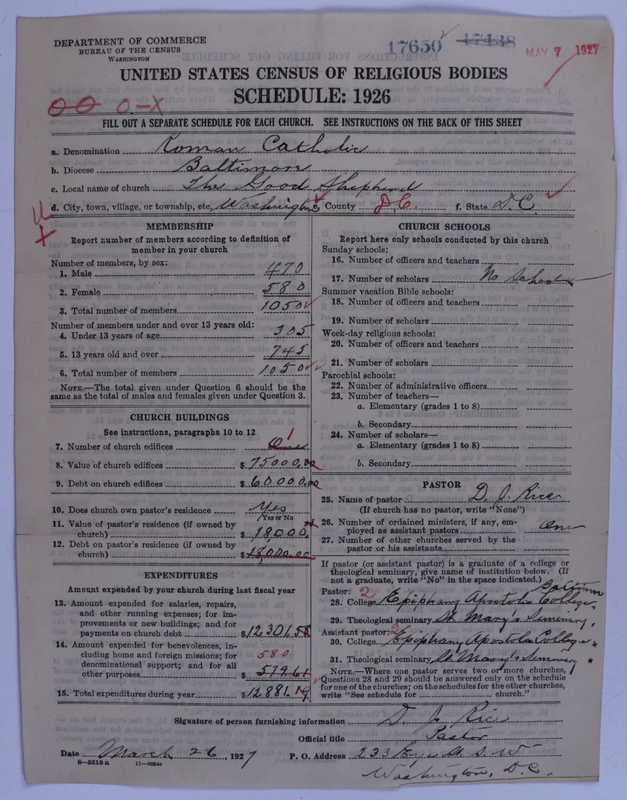 DEPARTMENT OF COMMERCE
BUREAU OF THE CENSUS
WASHINGTON
17650 17138
MAY 7 1927
UNITED STATES CENSUS OF RELIGIOUS BODIES
SCHEDULE: 1926
FILL OUT A SEPARATE SCHEDULE FOR EACH CHURCH. SEE INSTRUCTIONS ON THE BACK OF THIS SHEET
a. Denomination Roman Catholic
b. Diocese Baltimore
c. Local name of church The Good Shepherd
d. City, town, village, or township, etc. Washington e. County D.C. f. State D.C.
MEMBERSHIP
Report number of members according to definition of
member in your church
Number of members, by sex:
1. Male 470
2. Female 580
3. Total number of members 1050
Number of members under and over 13 years old:
4. Under 13 years of age 305
5. 13 years old and over 745
6. Total number of members 1050
NOTE.—The total given under Question 6 should be
same as the total of males and females given under Question 3.
CHURCH BUILDINGS
See instructions, paragraphs 10 to 12
7. Number of church edifices One 1
8. Value of church edifices $75000.00
9. Debt on church edifices $60,000.00
10. Does church own pastor's residence Yes
(Yes or No)
11. Value of pastor's residence (if owned by
church) $18,000.
12. Debt on pastor's residence (if owned by
church) $18,000.00
EXPENDITURES
Amount expended by your church during last fiscal year
13. Amount expended for salaries, repairs,
and other running expenses; for im-
provements or new buildings; and for
payments on church debt $12301.58
14. Amount expended for benevolences, in-
cluding home and foreign missions; for
denominational support; and for all
other purposes 580 579.61
15. Total expenditures during year $12881.19
CHURCH SCHOOLS
Report here only schools conducted by this church
Sunday schools:
16. Number of officers and teachers
17. Number of scholars No School
Summer vacation Bible schools:
18. Number of officers and teachers
19. Number of scholars
Week-day religious schools:
20. Number of officers and teachers
21. Number of scholars
Parochial schools:
22. Number of administrative officers
23. Number of teachers—
a. Elementary (grades 1 to 8)
b. Secondary
24. Number of scholars—
a. Elementary (grades 1 to 8)
b. Secondary
PASTOR
25. Name of pastor D. J. Rice
(If church has no pastor, write "None")
26. Number of ordained ministers, if any, em-
ployed as assistant pastors One
27. Number of other churches served by the
pastor or his assistants
If pastor (or assistant pastor) is a graduate of a college or
theological seminary, give name of institution below. (If
not a graduate, write "No" in the space indicated.)
Pastor: 2
28. College Epiphany Apostolic College,
29. Theological seminary St. Mary's Seminary
Assistant pastor: 2
30. College Epiphany Apostolic College
31. Theological seminary St. Mary's Seminary
NOTE.—Where one pastor serves two or more churches,
Questions 28 and 29 should be answered only on the schedule
for one of the churches; on the schedules for the other churches,
write "See schedule for church."
Signature of person furnishing information D. J. Rice
Official title Pastor
Date March 26, 1927 P. O. Address 233 Eye St S.W.
8—5518 a
Washington, D.C.